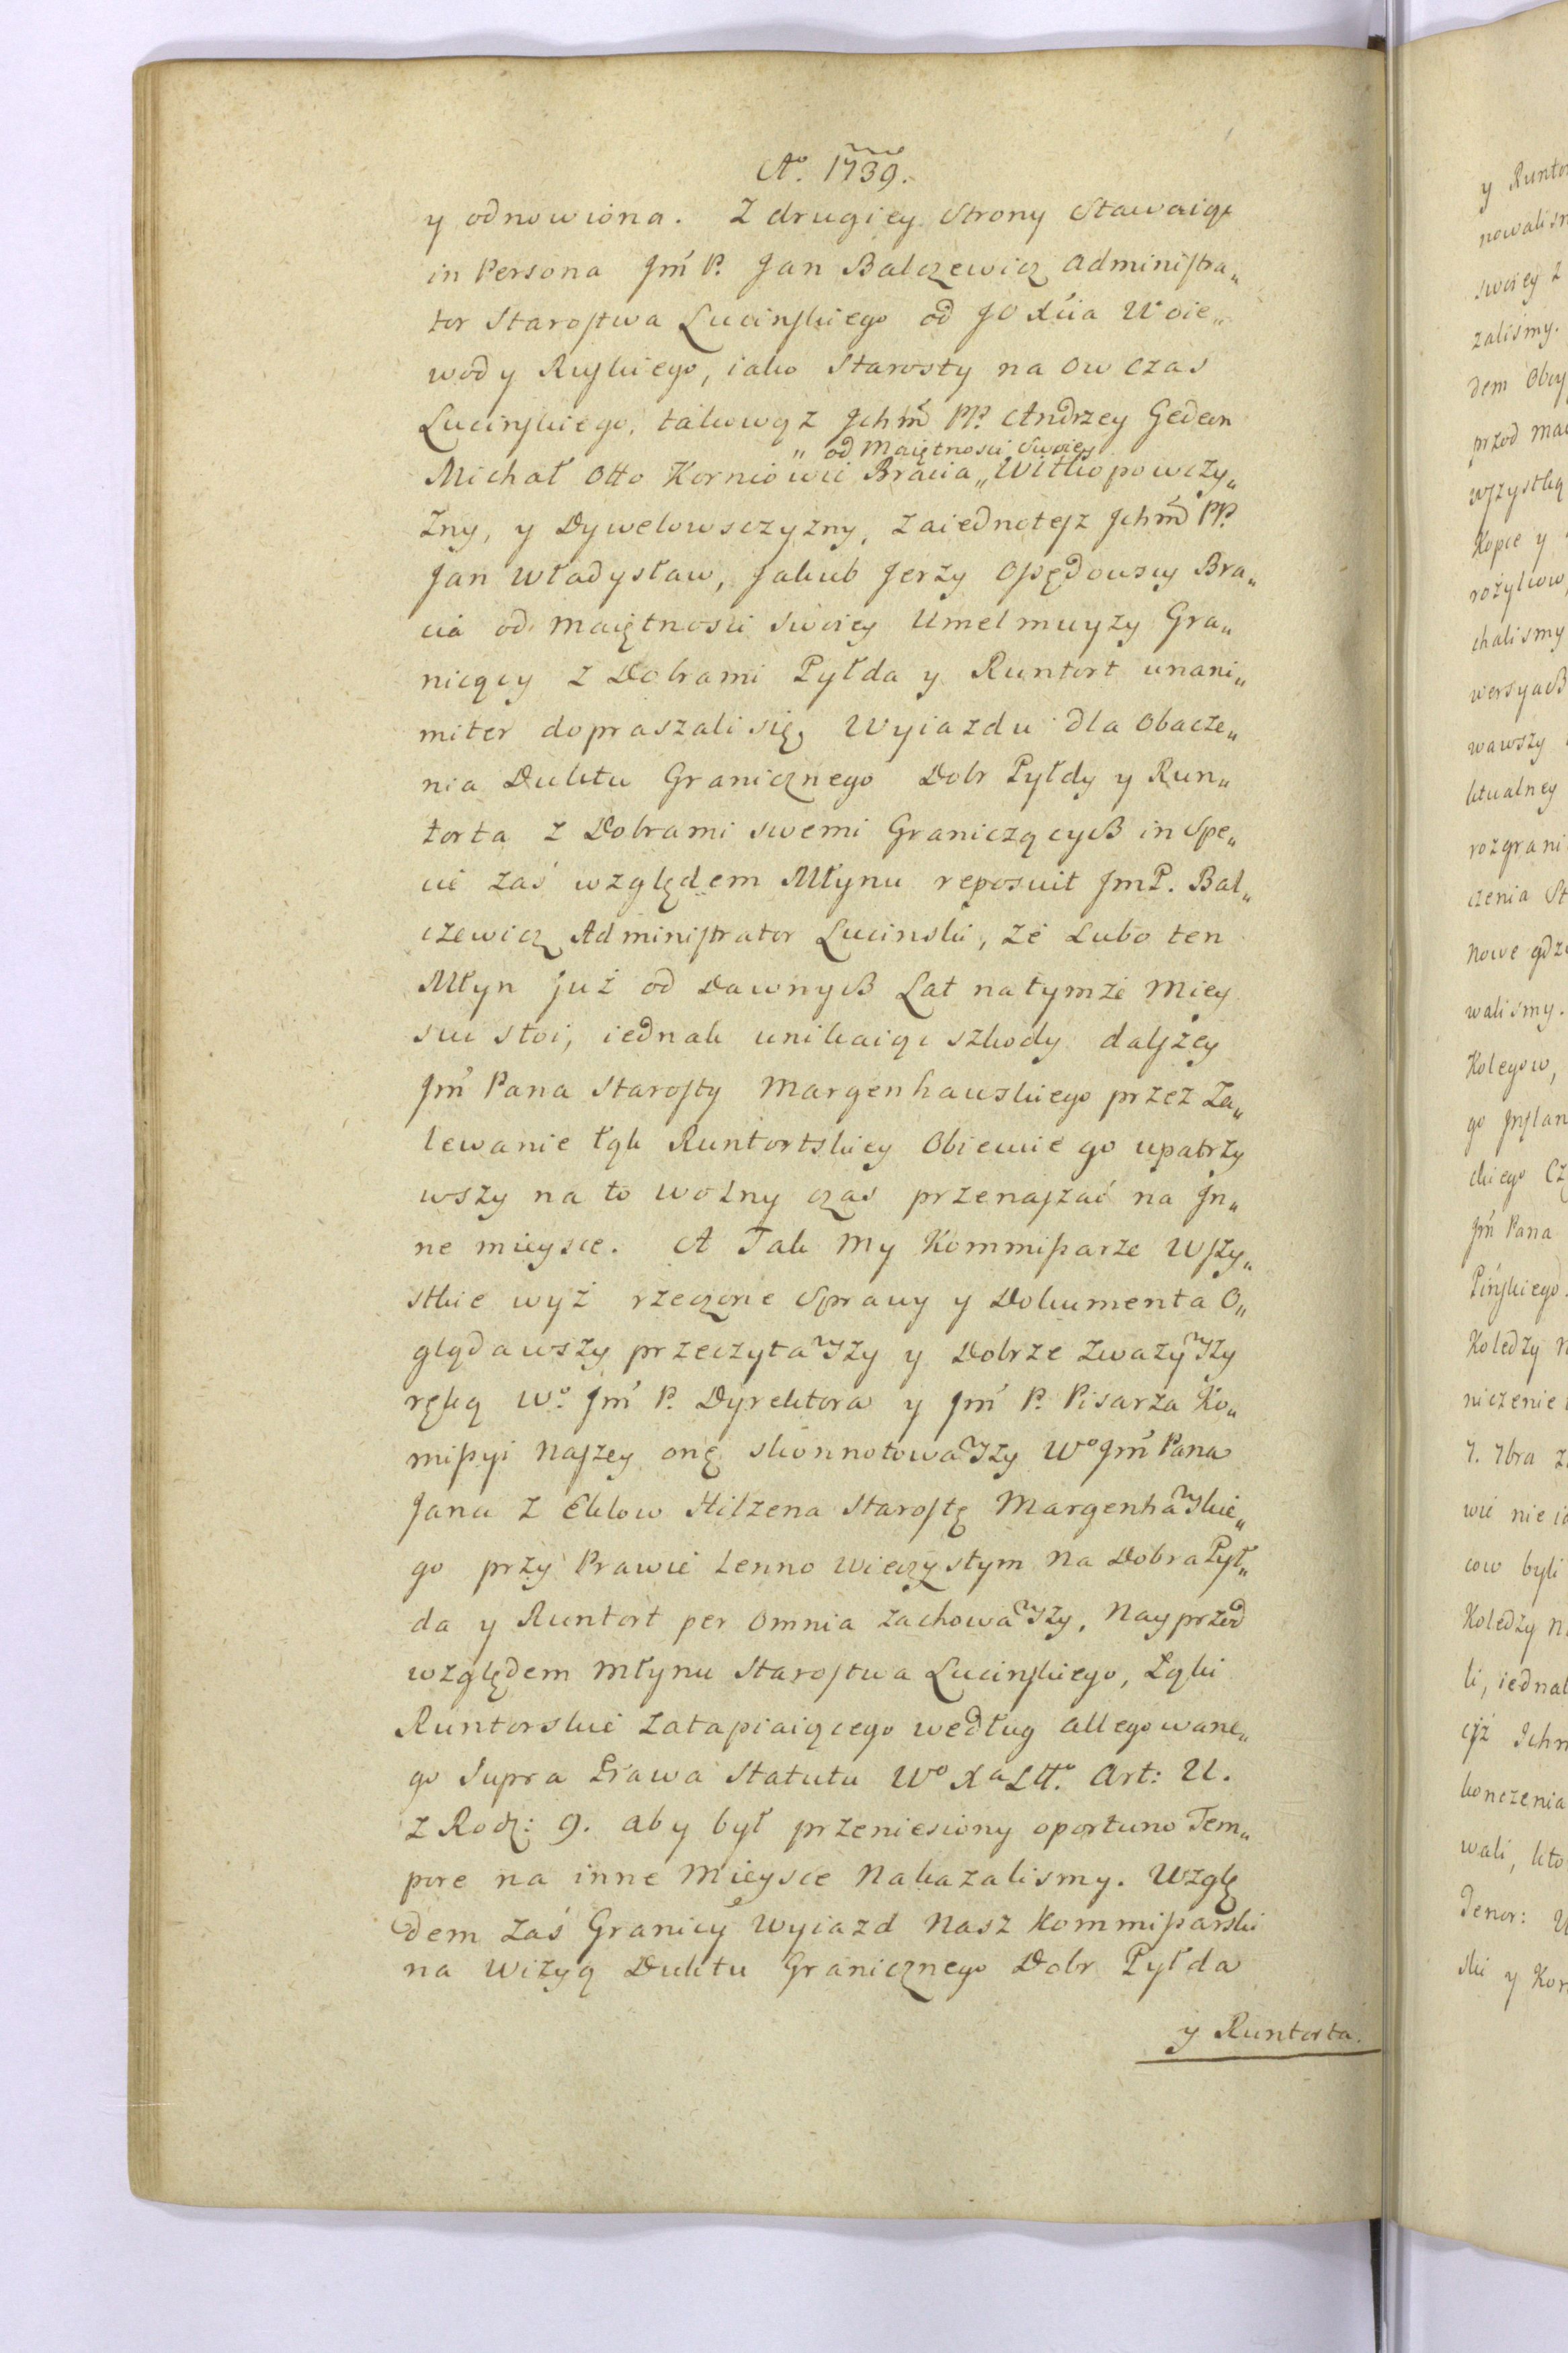 Aº. 1739.
y odnowiona. Z drugiey Strony Stawaiąc
in Persona Jm̃ P. Jan Balczewicz Administra„
tor Starostwa Lucinskiego od JO Xcia Woie„
wody Ruskiego, iako Starosty na ow czas
Lucinskiego, takowąz Jchm̃d PP. Andrzey Gedeon
„ od Maiętnosci Swoiey
Michał Otto Korniowie Bracia „ Witkopowczy„
zny, y Dywelowsczyzny, zaiednotesz Jchm̃d PP.
Jan Władysław, Jakub Jerzy Opędowscy Bra„
cia od Maiętnosci Swoiey Umelmuyzy Gra„
nicący z Dobrami Pyłda y Runtort unani„
miter dopraszali się, Wyiazdu dla Obacze„
nia Duktu Granicznego Dobr Pyłdy y Run„
torta z Dobrami swemi Graniczących in Spe„
cie zaś względem Młynu reposuit JmP. Bal„
czewicz Administrator Lucinski, że Lubo ten
Młyn już od Dawnych Lat natymże Miey
scu stoi, iednak unikaiąc szkody dalszey
Jm̃ Pana Starosty Margenhauzkiego przez Za„
lewanie łąk Runtortskiey Obiecuie go upatrzy
wszy na to wolny czas przenaszać na Jn„
ne mieysce. A Tak My Kommissarze Wszy„
stkie wyż rzeczone Sprawy y Dokumenta O„
glądawszy przeczytawszy y Dobrze zważywszy
ręką Wº. Jm̃ P. Dyrektora y Jm̃ P. Pisarza Ko„
missyi Naszey onę skonnotowawszy Wº Jm̃ Pana
Jana z Eklow Hilzena Starostę Margenhawskie„
go przy Prawie Lenno wieczystym na Dobra Pył„
da y Runtort per omnia zachowawszy, Nayprzod
względem Młynu Starostwa Lucinskiego, Łąki
Runtorskie zatapiaiącego według allegowane„
go Supra Prawa Statutu Wº Xª Littº. Art: U.
z Rodz: 9. aby był przeniesiony oportuno Tem„
pore na inne Mieysce Nakazalismy. Wzglę
dem zaś Granicy Wyiazd Nasz Kommissarski
na Wizyą Duktu Granicznego Dobr Pyłda
y Runtorta.